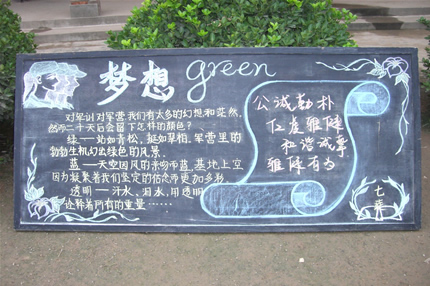 梦想 green
对军训对军营我们有太多的幻想和茫然,
然而二十天后会留下怎样的颜色?
绿——站如青松,挺如翠柏,军营里的
勃勃生机勾出绿色的风景。
蓝——天空因风的手吻而蓝,基地上空
因为凝聚着我们坚定的信念而更加多彩
透明——汗水、泪水,用透明
诠释着所有的重量……
公诚勤朴
仁爱雅健
和谐成事
雅健有为
七